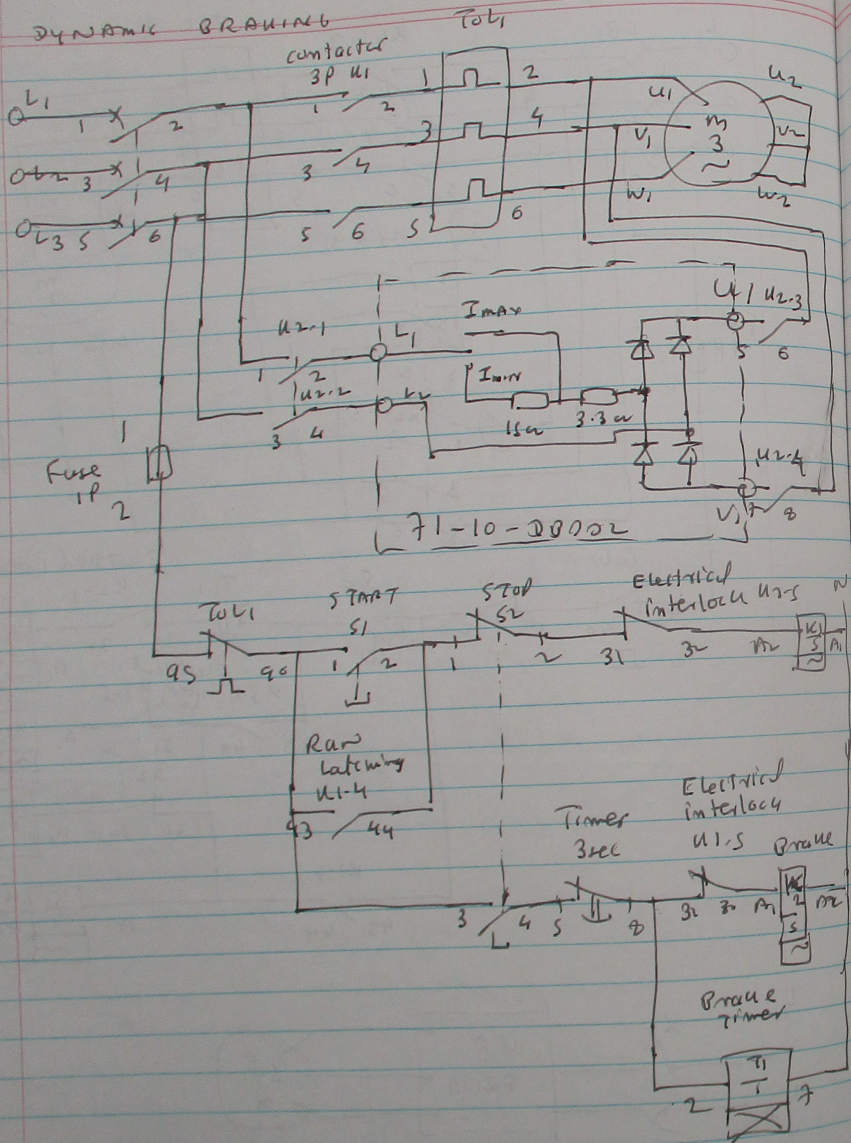 DYNAMIC BRAKING
TOL1
contactor
3P K1
L1
1 2
1 2
1 2
U1
U2
L2 3 4
3 4
3 4
V1
M
3
~
V2
L3 5 6
5 6
5 6
W1
W2
K2-1
L1
Imax
U1
K2-3
1 2
5 6
K2-2
L2
Imin
3 4
15Ω
3.3Ω
K2-4
V1
7 8
1
Fuse
1P
2
71-10-DB002
TOL1
START
S1
STOP
S2
Electrical
interlock K2-5
N
95 96
1 2
1 2
31 32
A2
K1
5
~
A1
Run
Latching
K1-4
43 44
Timer
3sec
Electrical
interlock
K1-5
Brake
3 4
5 8
A1
K
2
5
~
A2
Brake
Timer
T1
2 7